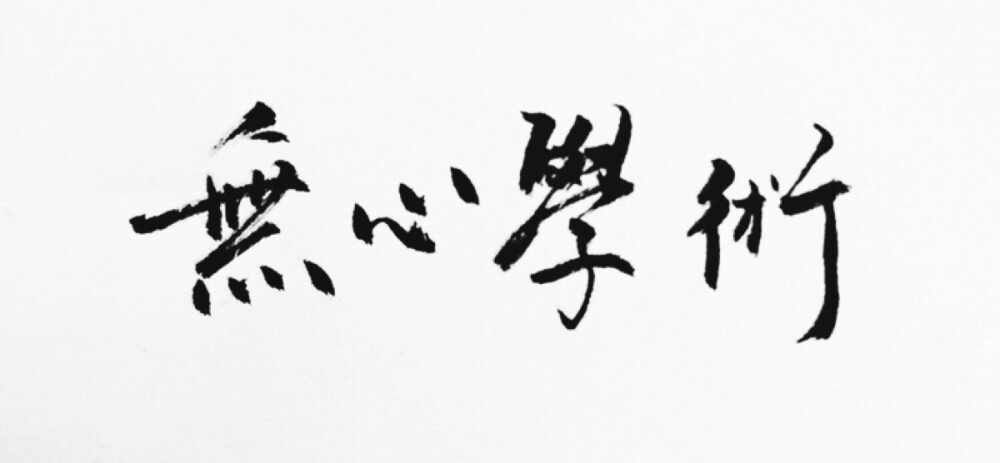 無心學術